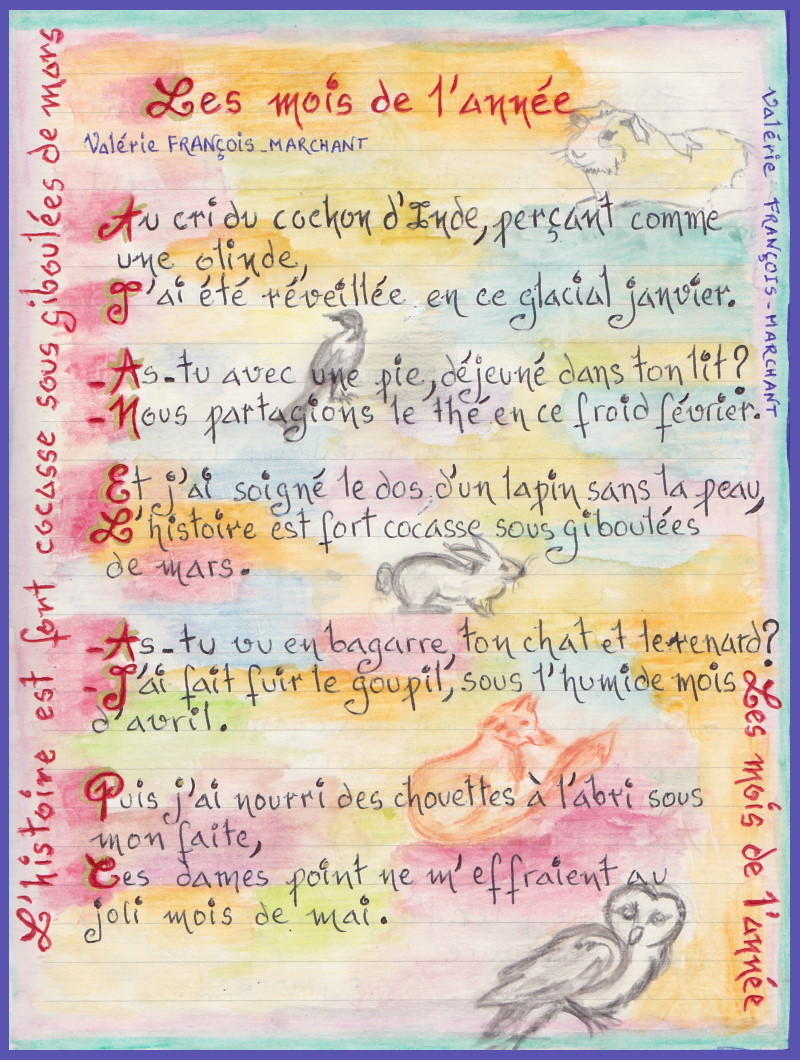 Les mois de l'année
Valérie FRANÇOIS-MARCHANT
Au cri du cochon d'Inde, perçant comme
une olinde,
J'ai été réveillée en ce glacial janvier.
-As-tu avec une pie, déjeuné dans ton lit?
-Nous partagions le thé en ce froid février.
Et j'ai soigné le dos d'un lapin sans la peau,
L'histoire est fort cocasse sous giboulées
de mars.
-As-tu vu en bagarre, ton chat et le renard?
-J'ai fait fuir le goupil, sous l'humide mois
d'avril.
Puis j'ai nourri des chouettes à l'abri sous
mon faite,
Ces dames point ne m'effraient au
joli mois de mai.
L'histoire est fort cocasse sous giboulées de mars
Valérie FRANÇOIS-MARCHANT
Les mois de l'année